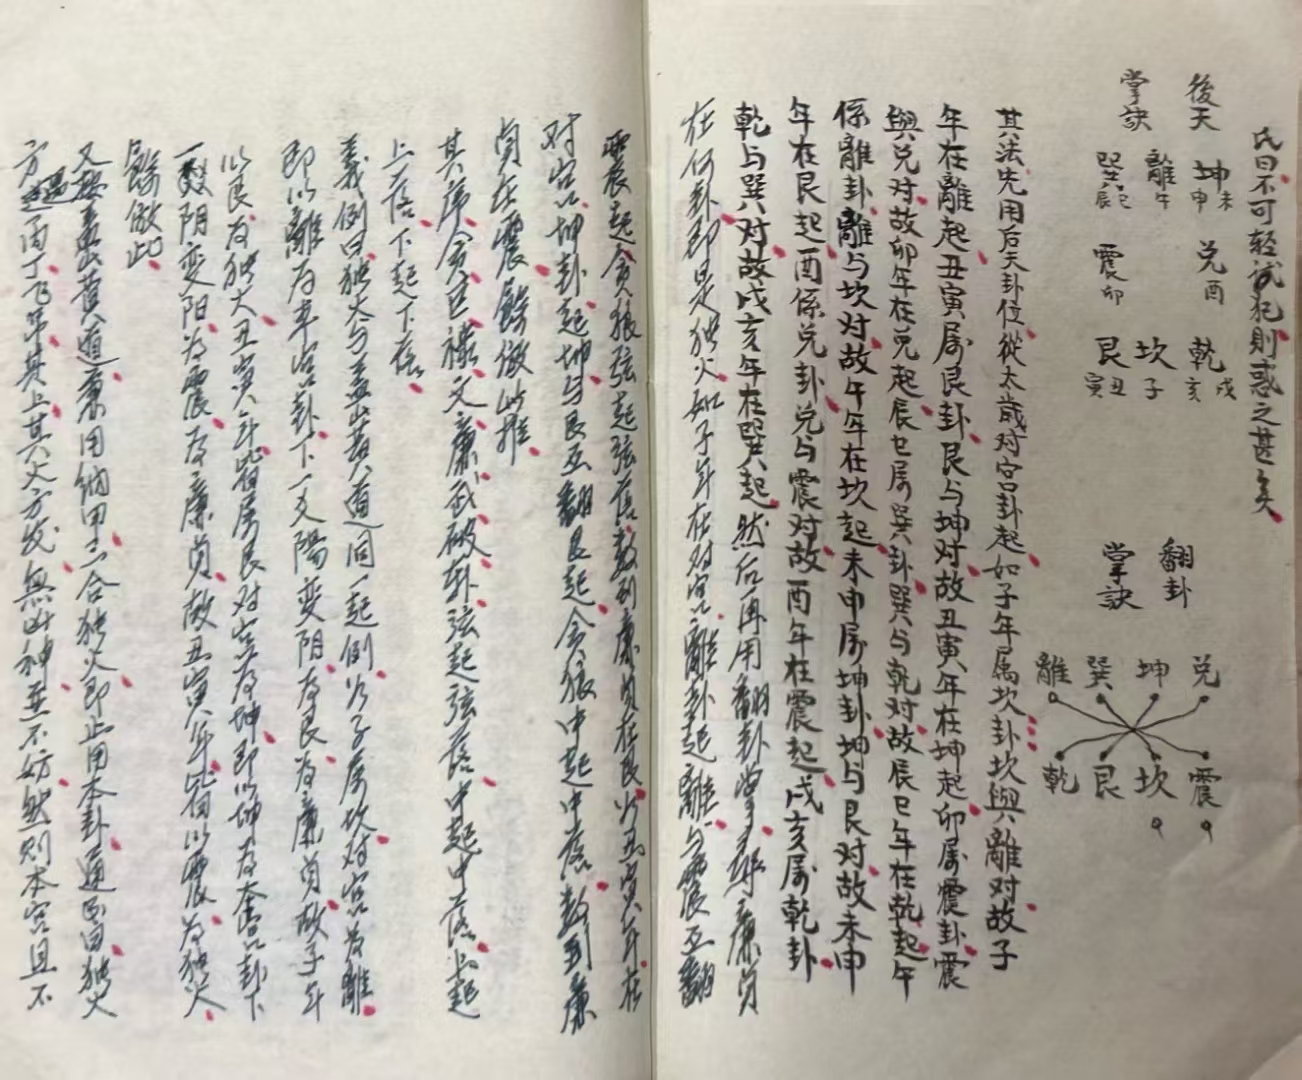 氏曰不可轻試犯則惑之甚矣
後天
掌訣
坤未申
離午
巽巳辰
兑酉
震卯
乾戌亥
坎子
艮丑寅
翻卦
掌訣
兑
坤
巽
離
震
坎
艮
乾
其法先用后天卦位從太歲对宫卦起如子年属坎卦坎與離对故子
年在離起丑寅属艮卦艮与坤对故丑寅年在坤起卯属震卦震
與兑对故卯年在兑起辰巳属巽卦巽与乾对故辰巳年在乾起午
係離卦離与坎对故午年在坎起未申属坤卦坤与艮对故未申
年在艮起酉係兑卦兑与震对故酉年在震起戌亥属乾卦
乾与巽对故戌亥年在巽起然后再用翻卦掌寻廉貞
在何卦即是独火如子年在对宫離卦起離与震互翻
震起貪狼弦起弦落数到廉貞在艮如丑寅年在
对宫坤卦起坤与艮互翻艮起貪狼中起中落数到廉
貞在震餘倣此推
其序貪巨禄文廉武破卦弦起弦落中起中落上起
上落下起下落
義例曰独火与盖山黄道同一起例如子属坎对宫为離
即以離为本宫卦下一爻陽变阴为艮为廉貞故子年
以艮为独火丑寅年皆属艮对宫为坤即以坤为本宫卦下
一爻阴变阳为震为廉貞故丑寅年皆以震为独火
餘倣此
又盖山黄道兼用納甲三合独火即止用本卦通書曰独火
方遇丙丁飞吊其上其火方发無凶神至不妨然则本宫且不